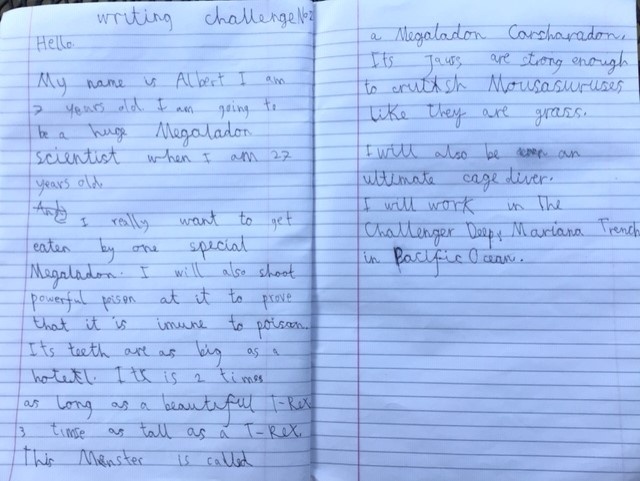 writing challenge No2
Hello.
My name is Albert I am
7 years old. I am going to
be a huge Megaladon
scientist when I am 27
years old.
I really want to get
eaten by one special
Megaladon. I will also shoot
powerful poison at it to prove
that it is imune to poison.
Its teeth are as big as a
hotel. It is 2 times
as long as a beautiful T-Rex
3 timse as tall as a T-Rex.
This Monster is called
a Megaladon Carsharadon.
Its Jauss are strong enough
to crutsh Mousasuruses
like they are grass.
I will also be an
ultimate cage diver.
I will work in The
Challenger Deep, Mariana Trench
in Pacific Ocean.